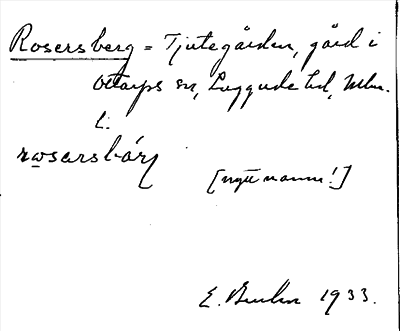 Rosersberg = Tjutegården, gård i
Ottarps sn, Luggude hd, Mlm.
l.
rosersbárj
[nytt namn!]
E. 1933.